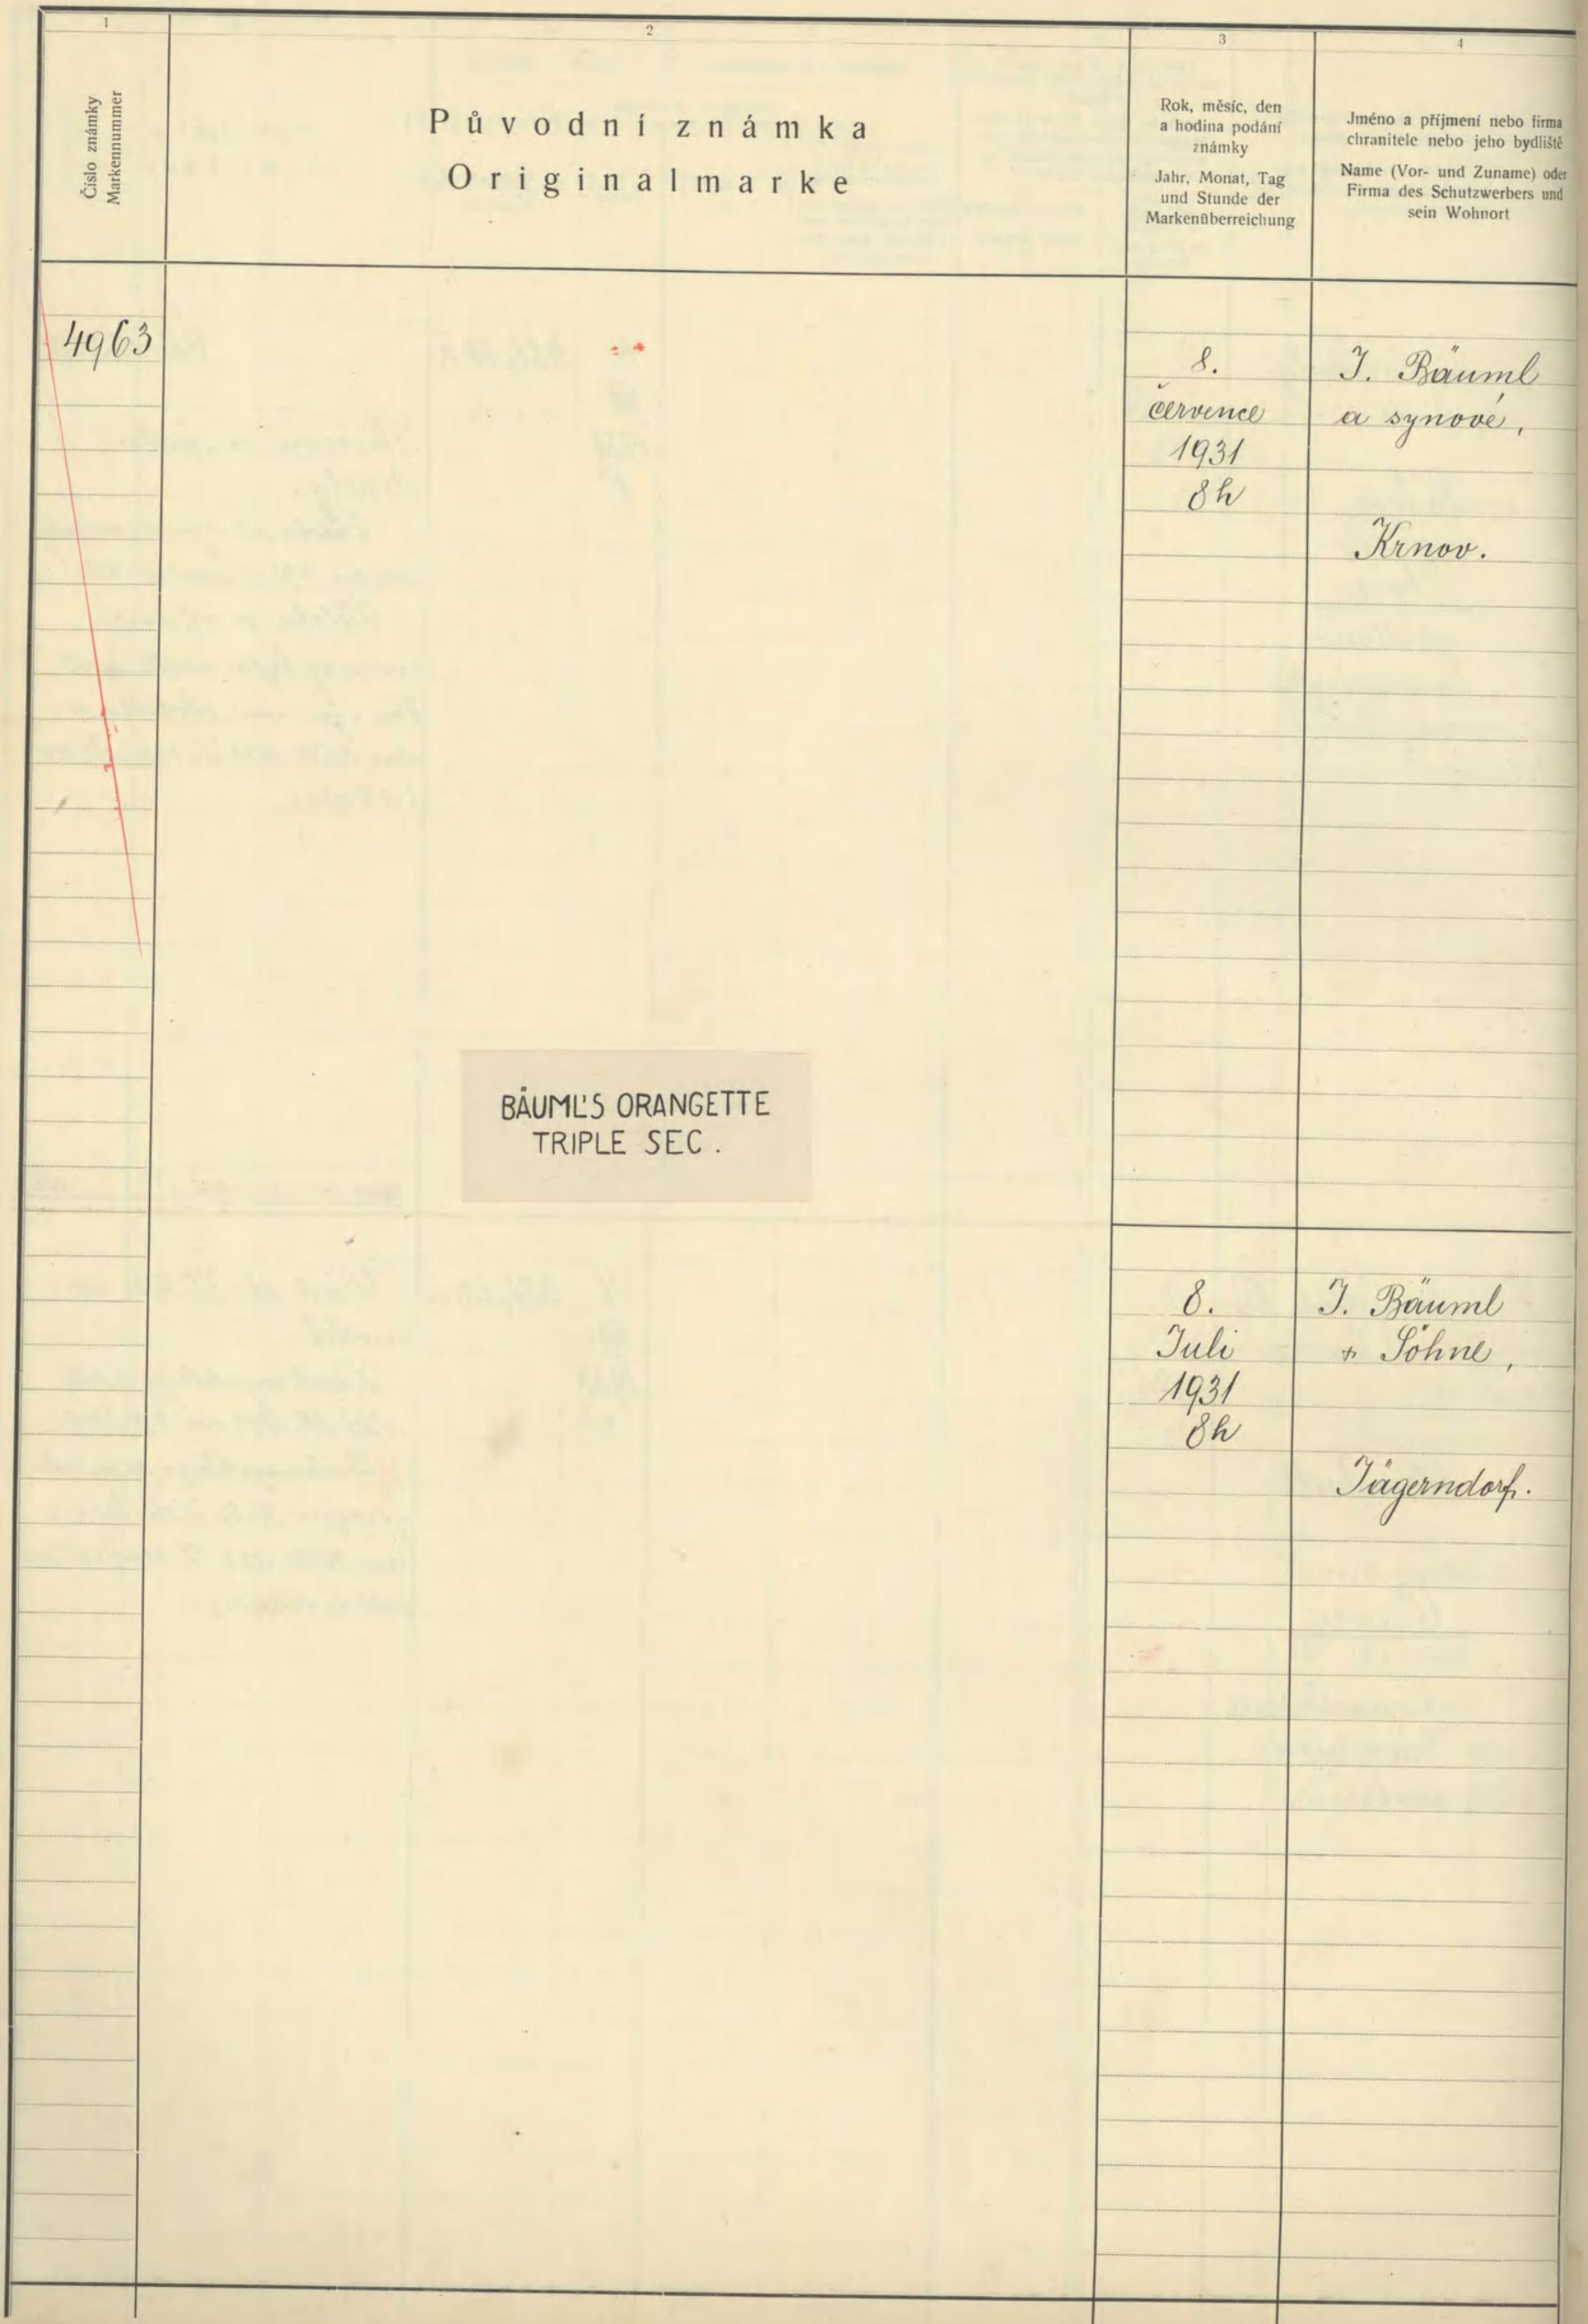 1
2
3
4
Číslo známky
Markennummer
Původní známka
Originalmarke
Rok, měsíc, den
a hodina podání
známky
Jahr, Monat, Tag
und Stunde der
Markenüberreichung
Jméno a příjmení nebo firma
chranitele nebo jeho bydliště
Name (Vor- und Zuname) oder
Firma des Schutzwerbers und
sein Wohnort
4963
8.
července
1931
8h
J. Bäuml
a synové,
Krnov.
BÄUML'S ORANGETTE
TRIPLE SEC.
8.
Juli
1931
8h
J. Bäuml
+ Söhne,
Jägerndorf.